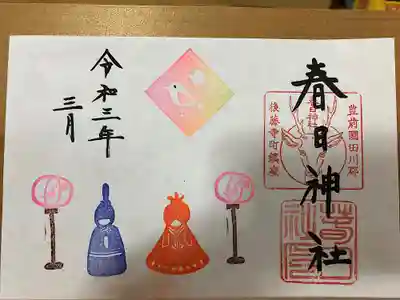 春日神社
豊前國田川郡
後藤寺町鎮座
令和三年
三月